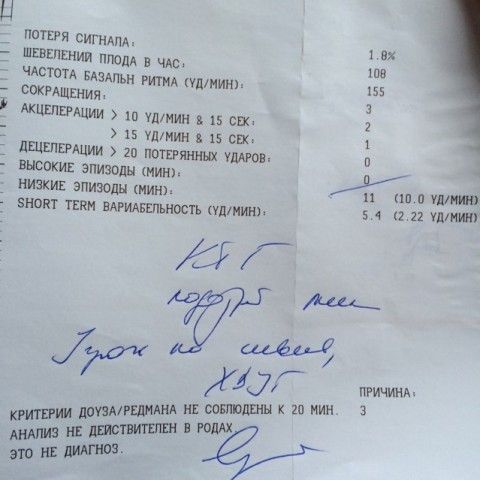 ПОТЕРЯ СИГНАЛА: 1.8%
ШЕВЕЛЕНИЙ ПЛОДА В ЧАС: 108
ЧАСТОТА БАЗАЛЬН РИТМА (УД/МИН): 155
СОКРАЩЕНИЯ: 3
АКЦЕЛЕРАЦИИ > 10 УД/МИН & 15 СЕК: 2
> 15 УД/МИН & 15 СЕК: 1
ДЕЦЕЛЕРАЦИИ > 20 ПОТЕРЯННЫХ УДАРОВ: 0
ВЫСОКИЕ ЭПИЗОДЫ (МИН): 0
НИЗКИЕ ЭПИЗОДЫ (МИН): 11 (10.0 УД/МИН)
SHORT TERM ВАРИАБЕЛЬНОСТЬ (УД/МИН): 5.4 (2.22 УД/МИН)
КТГ
ПРИЧИНА:
КРИТЕРИИ ДОУЗА/РЕДМАНА НЕ СОБЛЮДЕНЫ К 20 МИН. 3
АНАЛИЗ НЕ ДЕЙСТВИТЕЛЕН В РОДАХ.
ЭТО НЕ ДИАГНОЗ.